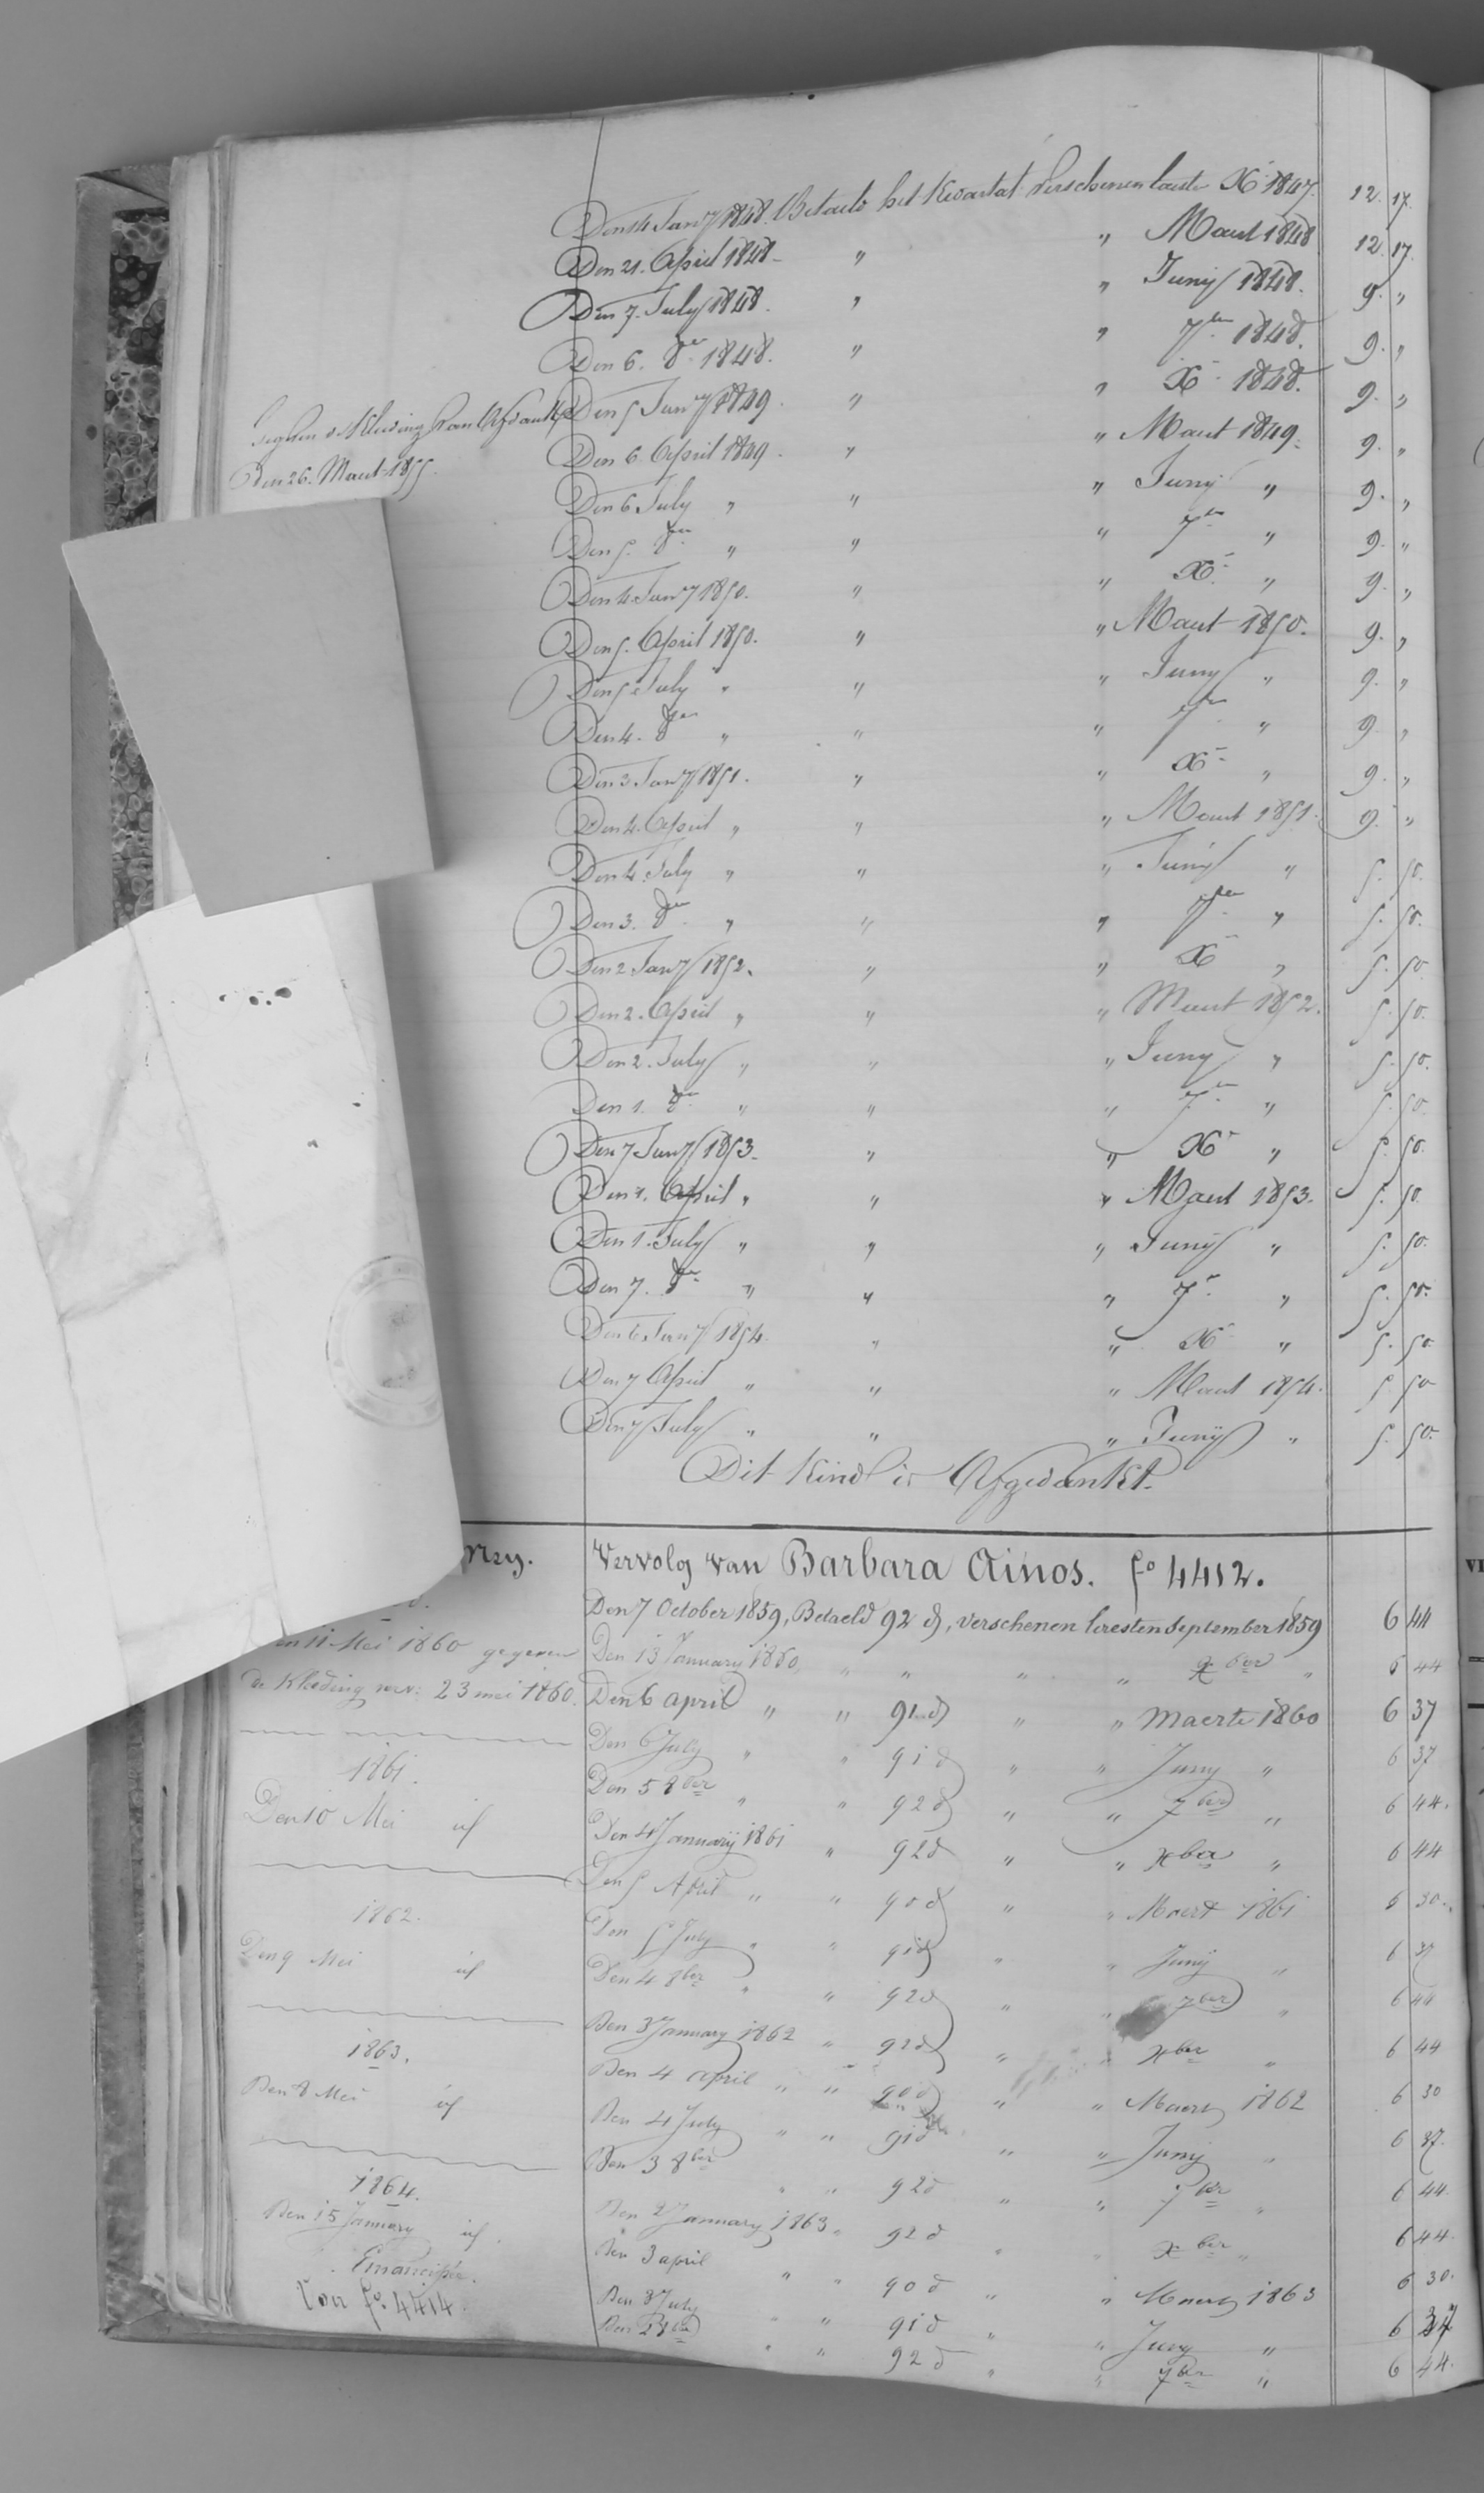 Den 14 Jan.y 1848. Betaelt het Kwartal verschenen laeste Xr 1847. 12. 17.
Den 21. April 1848. " " Maart 1848 12. 17.
Den 7. July 1848. " " Juny 1848. 9. "
Den 6. 8er 1848. " " 7er 1848. 9. "
Den 5 Jany 1849. " " Xr 1848. 9. "
Den 6. April 1849. " " Maart 1849. 9. "
Den 6 July " " " Juny " 9. "
Den 5. 8er " " " 7er " 9. "
Den 4 Jany 1850. " " Xr " 9. "
Den 5. April 1850. " " Maart 1850. 9. "
Den 5 July " " " Juny " 9. "
Den 4. 8er " " " 7er " 9. "
Den 3 Jany 1851. " " Xr " 9. "
Den 4. April " " " Maart 1851. 9. "
Den 4. July " " " Juny " 5. 50.
Den 3. 8er " " " 7er " 5. 50.
Den 2 Jany 1852. " " X " 5. 50
Den 2. April " " " Maart 1852. 5. 50.
Den 2. July " " " Juny " 5. 50.
Den 1. 8er " " " 7er " 5. 50.
Den 7 Jany 1853. " " Xr " 5. 50.
Den 1. April " " " Maart 1853. 5. 50.
Den 1. July " " " Juny " 5. 50.
Den 7. 8r " " " 7r " 5. 50.
Den 6 Jany 1854. " " Xr " 5. 50.
Den 7 April " " " Maart 1854. 5. 50
Den 7 July " " " Juny " 5. 50.
Dit Kind is Afgedankt.
Kleding van Afdank
Den 26. Maart 1855.
Vervolg van Barbara Ainos. fo 4412.
Den 7 October 1859, Betaeld 92 d, verschenen leresten September 1859 6 44
Den 13 January 1860, " " " " Xber " 6 44
Den 6 april " " 91 d " " Maerte 1860 6 37
Den 6 July " " 91 d " " Juny " 6 37
Den 5 8ber " " 92 d " " 7ber " 6 44.
Den 4 January 1861 " 92 d " " Xber " 6 44
Den 5 April " " 90 d " " Maert 1861 6 30.
Den 5 July " " 91 d " " Juny " 6 37
Den 4 8ber " " 92 d " " 7ber " 6 44
Den 3 January 1862 " 92 d " " Xber " 6 44
Den 4 april " " 90 d " " Maert 1862 6 30
Den 4 July " " 91 d " " Juny " 6 37.
Den 3 8ber " " 92 d " " 7ber " 6 44.
Den 2 January 1863 " 92 d " " Xber " 6 44.
Den 3 april " " 90 d " " Maert 1863 6 30.
Den 3 July " " 91 d " " Juny " 6 37
Den 2 8ber " " 92 d " " 7ber " 6 44.
11 Mei 1860 gegeven
de Kleding 23 mei 1860.
1861.
Den 10 Mei id
1862.
Den 9 Mei id
1863.
Den 8 Mei id
1864.
Den 15 January id
Emancipée.
fo. 4414.